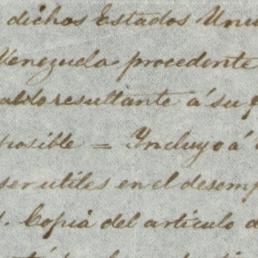 dichos Estados Uni
Venezuela procedente
saldo resultante á su
posible = Incluyo á
ser utiles en el desemp
Copia del articulo d